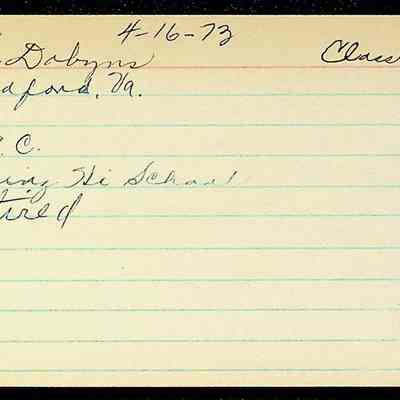 4-16-73
Dobyns Class
dford, Va.
. C.
ing Hi School
tired